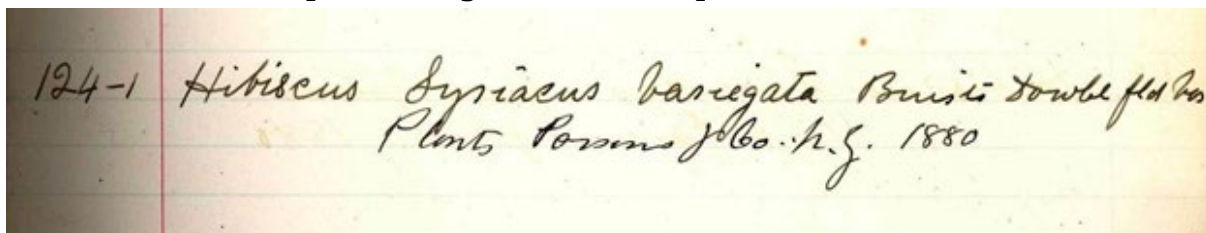 124-1 Hibiscus Syriacus variegata Buist's Double fld var
Plants Parsons & Co. N.Y. 1880